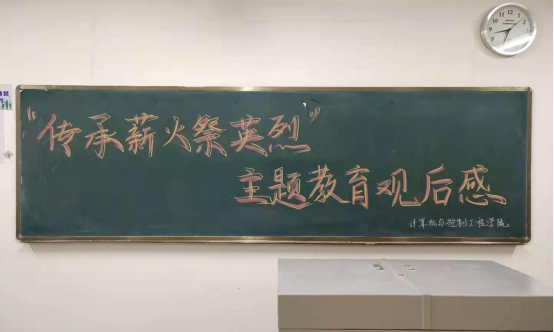 “传承薪火祭英烈”
主题教育观后感
计算机与控制工程学院